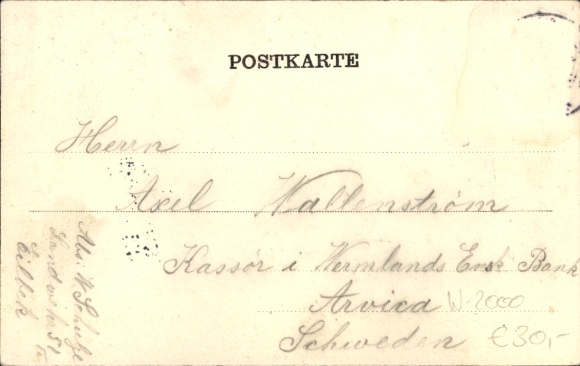 POSTKARTE
Herrn
Axel Wallenström
Kassör i Wermlands Ensk Bank
Arvica W-2000
Schweden €30,-
Abs. W Schütze
Eilbek